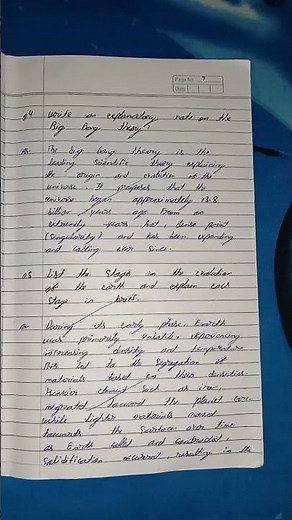 Page No. 7
Date
Q.4 Write an explanatory note on the
Big Bang theory.
Ans. The big bang theory is the
leading scientific theory explaining
the origin and evolution of the
universe. It proposes that the
universe began approximately 13.8
billion years ago from an
extremely hot, dense point
(singularity) and has been expanding
and colling ever since.
Q.5 List the Stages in the evolution
of the earth and explain each
Stage in brief.
Ans. During its early phase, Earth
was primarily volatile, experiencing
increasing density and temperature
This led to the Segregation of
materials based on their densities.
Heavier element Such as iron,
migrated toward the planet core,
while lighter materials moved
towards the Surface. over time
as Earth colled and contracted,
Solidification occurred, resulting in the